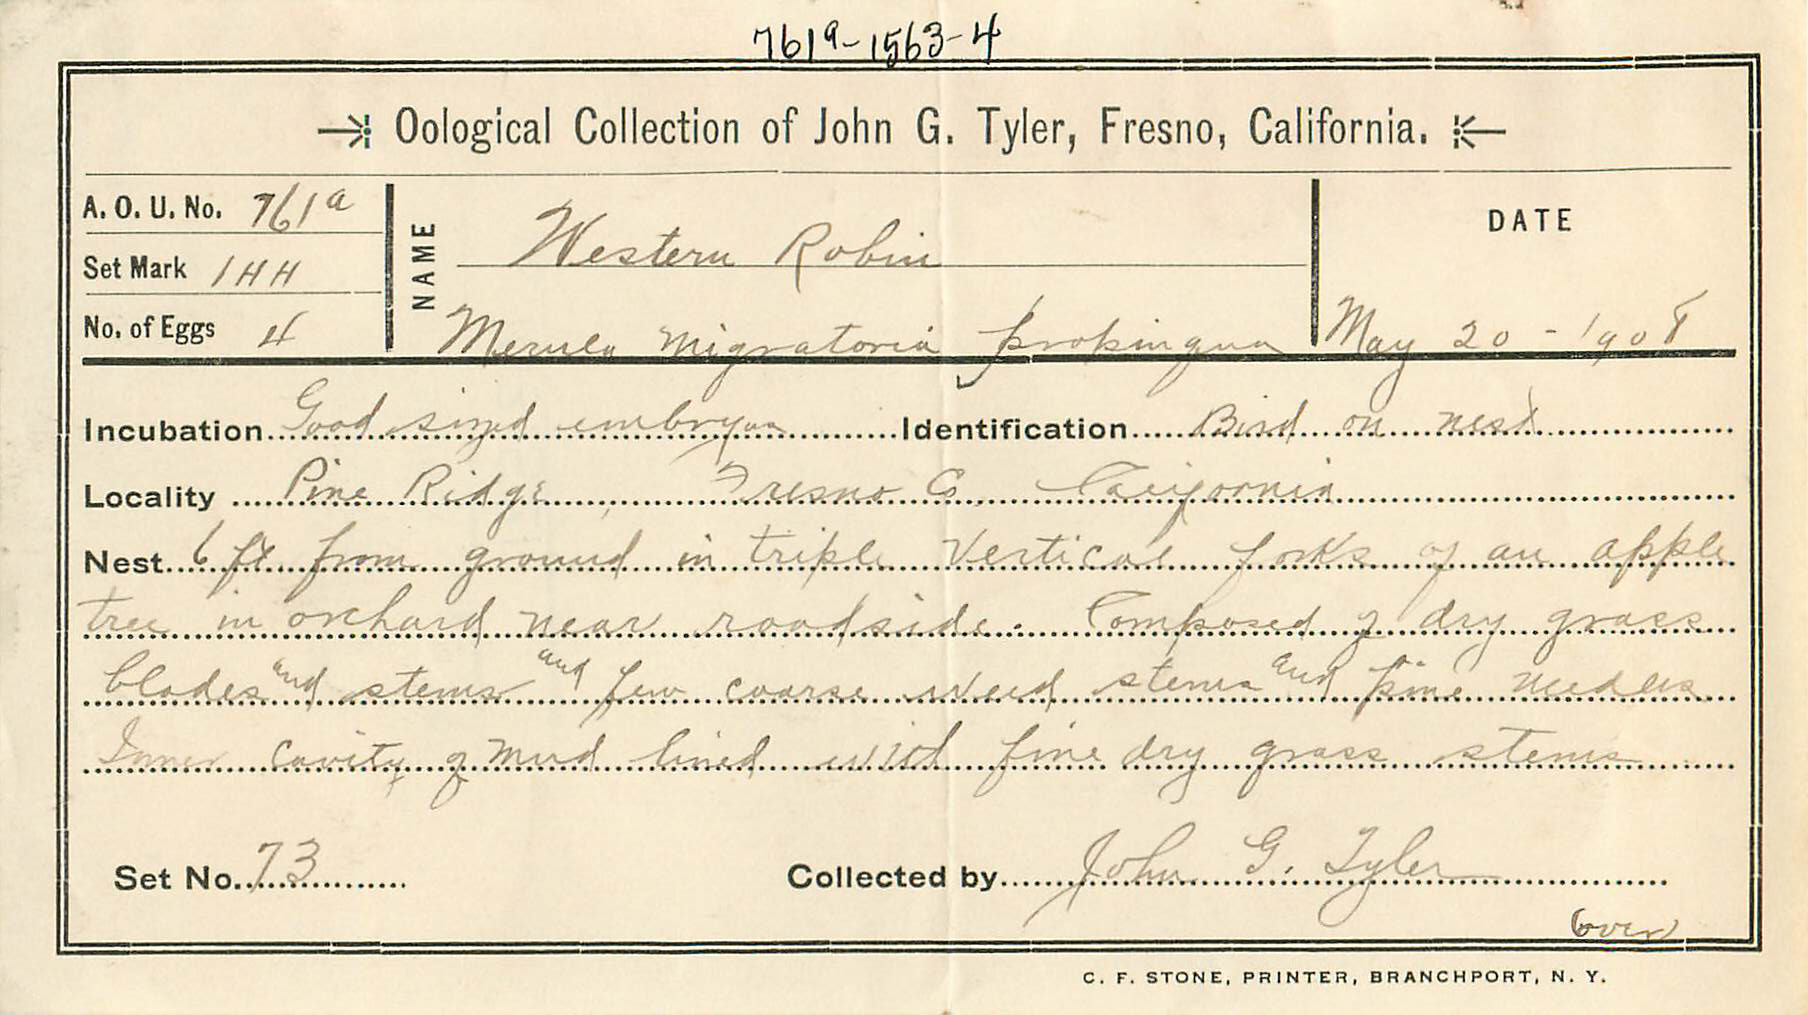 761a-1563-4
Oological Collection of John G. Tyler, Fresno, California.
A. O. U. No. 761a
Set Mark 1HH
No. of Eggs 4
NAME
Western Robin
Merula migratoria propinqua
DATE
May 20 - 1908
Incubation Good sized embryos Identification Bird on nest
Locality Pine Ridge, Fresno Co. California
Nest 6 ft from ground in triple vertical forks of an apple
tree in orchard near roadside. Composed of dry grass
blades and stems and few coarse weed stems and pine needles
Inner cavity of mud lined with fine dry grass stems
Set No. 73
Collected by John G. Tyler
over
C. F. STONE, PRINTER, BRANCHPORT, N. Y.